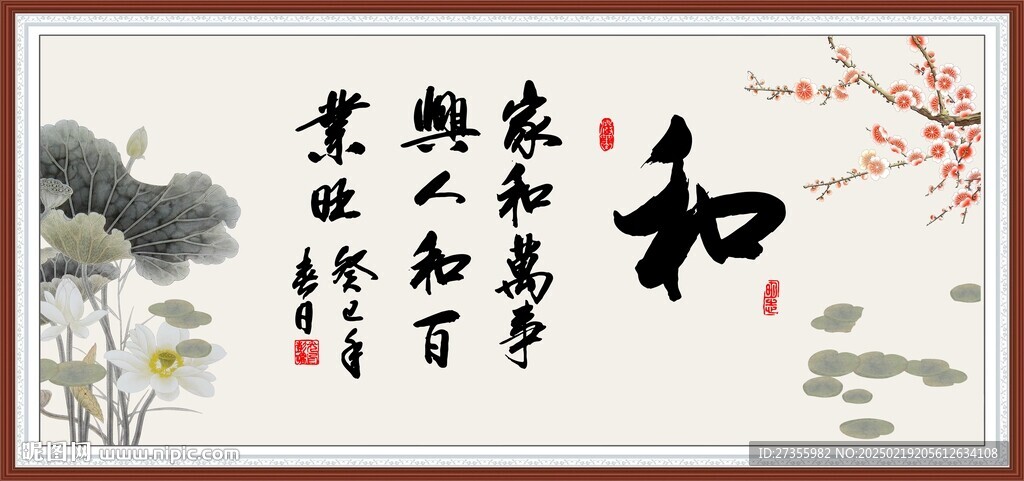 和
家和萬事
興人和百
業旺
癸巳年
春日
昵图网 www.nipic.com
ID:27355982 NO:20250219205612634108